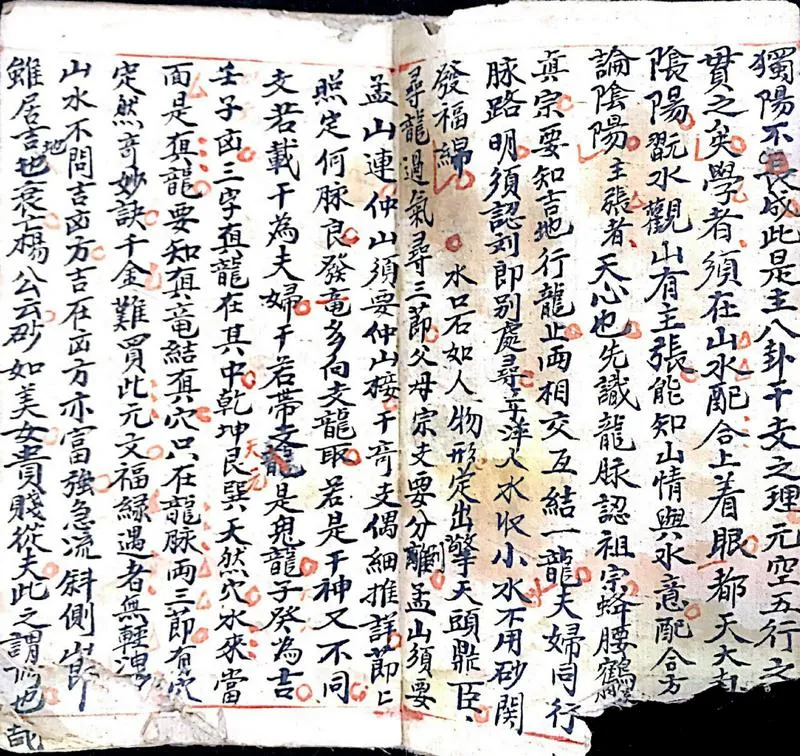 獨陽不長成此是主八卦干支之理元空五行之
貫之矣學者須在山水配合上着眼都天大卦
陰陽翫水觀山有主張能知山情與水意配合方
論陰陽主張者天心也先識龍脉認祖宗蜂腰鶴
真宗要知吉地行龍止両相交互結一龍夫婦同行
脉路明須認刘郎别處尋平洋大水収小水不用砂関
發福綿 水口石如人物形定出擎天頭鼎臣
尋龍過氣尋三節父母宗支要分離孟山須要
孟山連仲山須要仲山接干竒支偶細推詳節上
照定何脉良發竜多向支龍取若是干神又不同
支若載干為夫婦干若帶支龍是鬼龍子癸為吉
壬子凶三字真龍在其中乾坤艮巽天然穴水來當
天元
面是真龍要知真竜結真穴只在龍脉両三節有穴
定然竒妙訣千金難買此元文福緣遇者無輕洩
山水不問吉凶方吉在凶方亦富強急流斜側山節
雖居吉地衰亡楊公云砂如美女貴賤從夫此之謂也